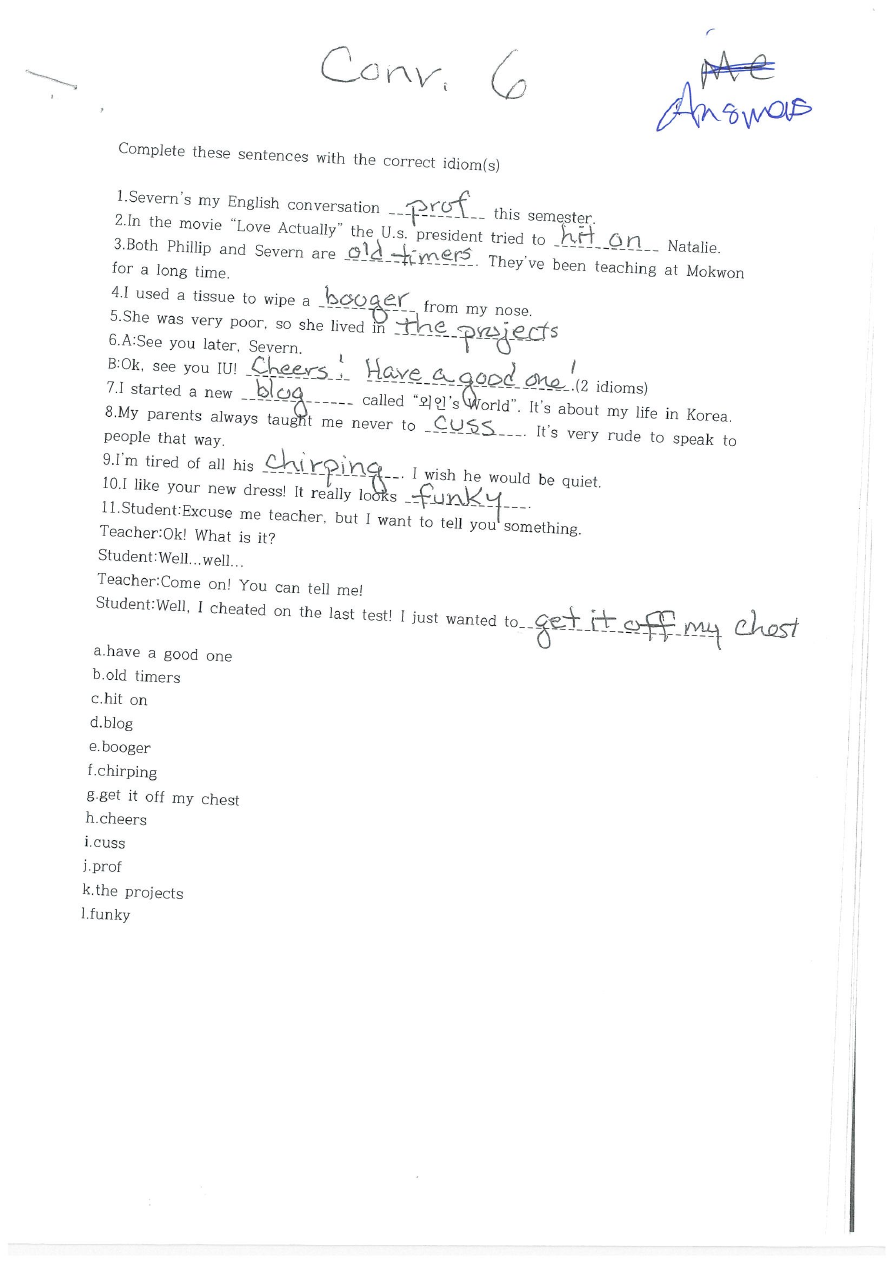 Conv. 6
Me
Answers
Complete these sentences with the correct idiom(s)
1.Severn's my English conversation prof this semester.
2.In the movie "Love Actually" the U.s. president tried to hit on Natalie.
3.Both Phillip and Severn are old timers. They've been teaching at Mokwon
for a long time.
4.I used a tissue to wipe a booger from my nose.
5.She was very poor, so she lived in the projects
6.A:See you later, Severn.
B:Ok, see you IU! Cheers! Have a good one!.(2 idioms)
7.I started a new blog called "외인's World". It's about my life in Korea.
8.My parents always taught me never to cuss. It's very rude to speak to
people that way.
9.I'm tired of all his chirping. I wish he would be quiet.
10.I like your new dress! It really looks funky.
11.Student:Excuse me teacher, but I want to tell you something.
Teacher:Ok! What is it?
Student:Well...well...
Teacher:Come on! You can tell me!
Student:Well, I cheated on the last test! I just wanted to get it off my chest
a.have a good one
b.old timers
c.hit on
d.blog
e.booger
f.chirping
g.get it off my chest
h.cheers
i.cuss
j.prof
k.the projects
l.funky